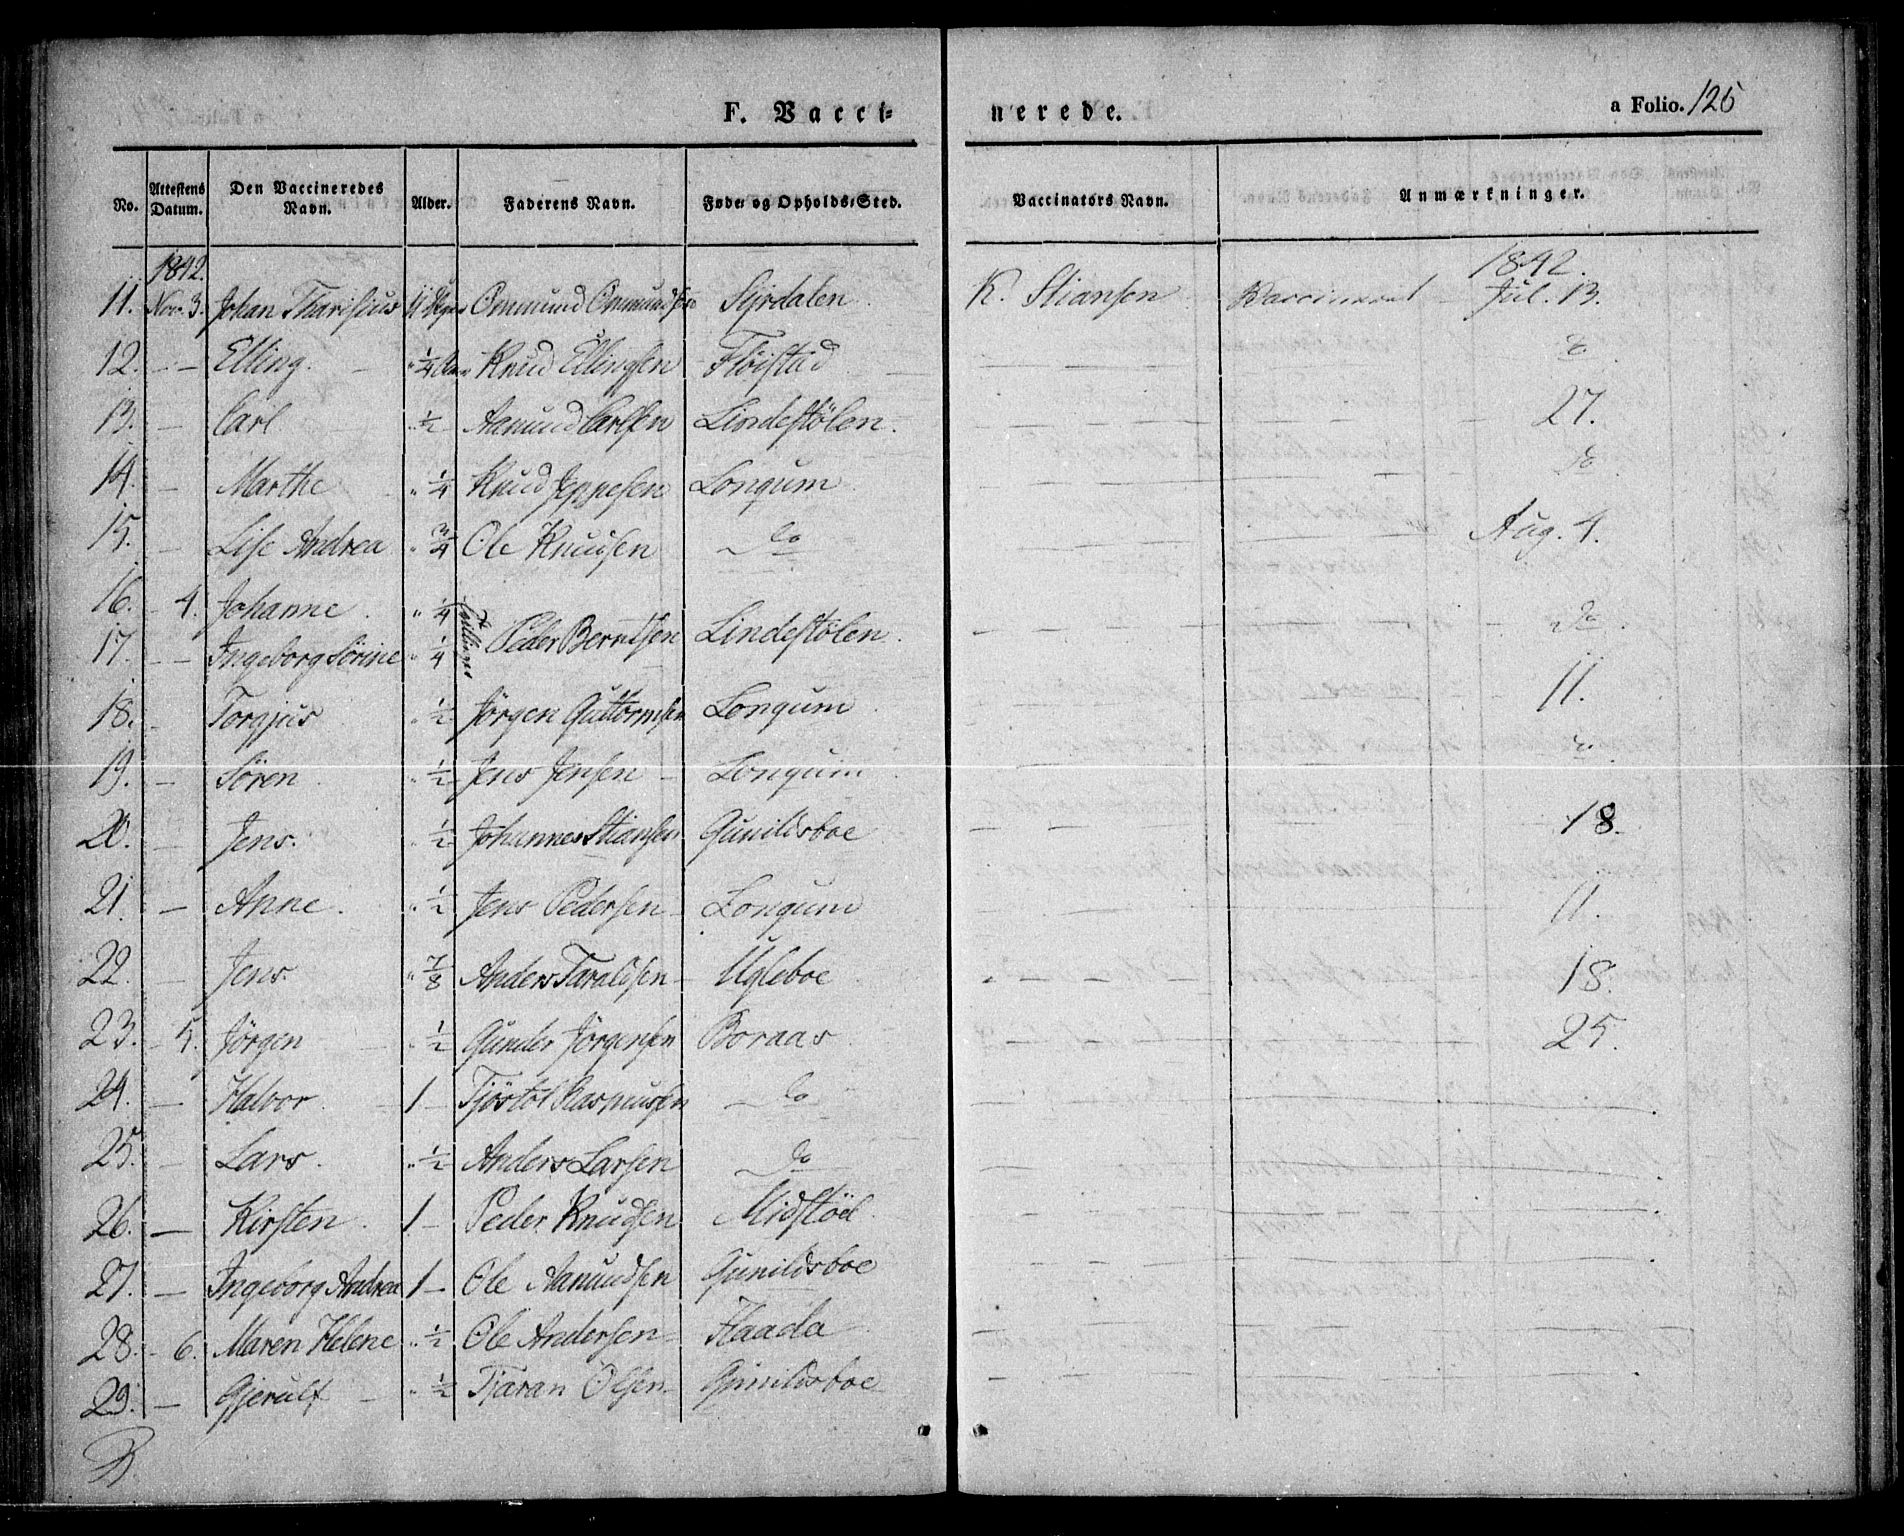 F. Vacci=nerede. a Folio. 125
No. Attestens Datum. Den Vaccineredes Navn. Alder. Faderens Navn. Føde- og Opholds-Sted. Vaccinators Navn. Anmærkninger.
1842. 1842.
11. Nov. 3. Johan 11 Ommund Ommundsen Syrdalen K. Stiansen Vaccineret Jul. 13.
12. — — Elling. " 1/4 Knud Ellingsen Fløistad — do
13. — Carl " 1/2 Aanund Carlsen Lindestølen. — 27.
14. — Marthe " 1/4 Knud Jeppesen Longum — do
15. — Lise Andrea " 3/4 Ole Knudsen — do — Aug. 4.
16. — 4. Johanne " 1/4 Tvillinger Peder Berntsen Lindestølen. — do
17. — — Ingeborg Sørine " 1/4
18. — Torgjus " 1/2 Jörgen Guttormsen Longum — 11.
19. — Sören " 1/2 Jens Jensen — Longum — do
20. — Jens. " 1/2 Johannes Stiansen Gunildsboe — 18.
21. — Anne. " 1/2 Jens Pedersen — Longum — 11.
22. — Jens " 7/8 Anders Taraldsen — Ugleboe — 18.
23. — 5. Jörgen " 1/2 Gunder Jörgensen Boraas — 25.
24. — Halvor 1 — Tjöstol Rasmusen — do —
25. — Lars. " 1/2 Anders Larsen do —
26. — Kirsten. 1 — Peder Knudsen Midstöel —
27. — Ingeborg Andrea 1 — Ole Aanundsen Gunildsboe —
28. — 6. Maren Helene " 1/2 Ole Andersen — Haada —
29. — Gjerulf — " 1/2 Tjaran Olsen — Gunildsboe —